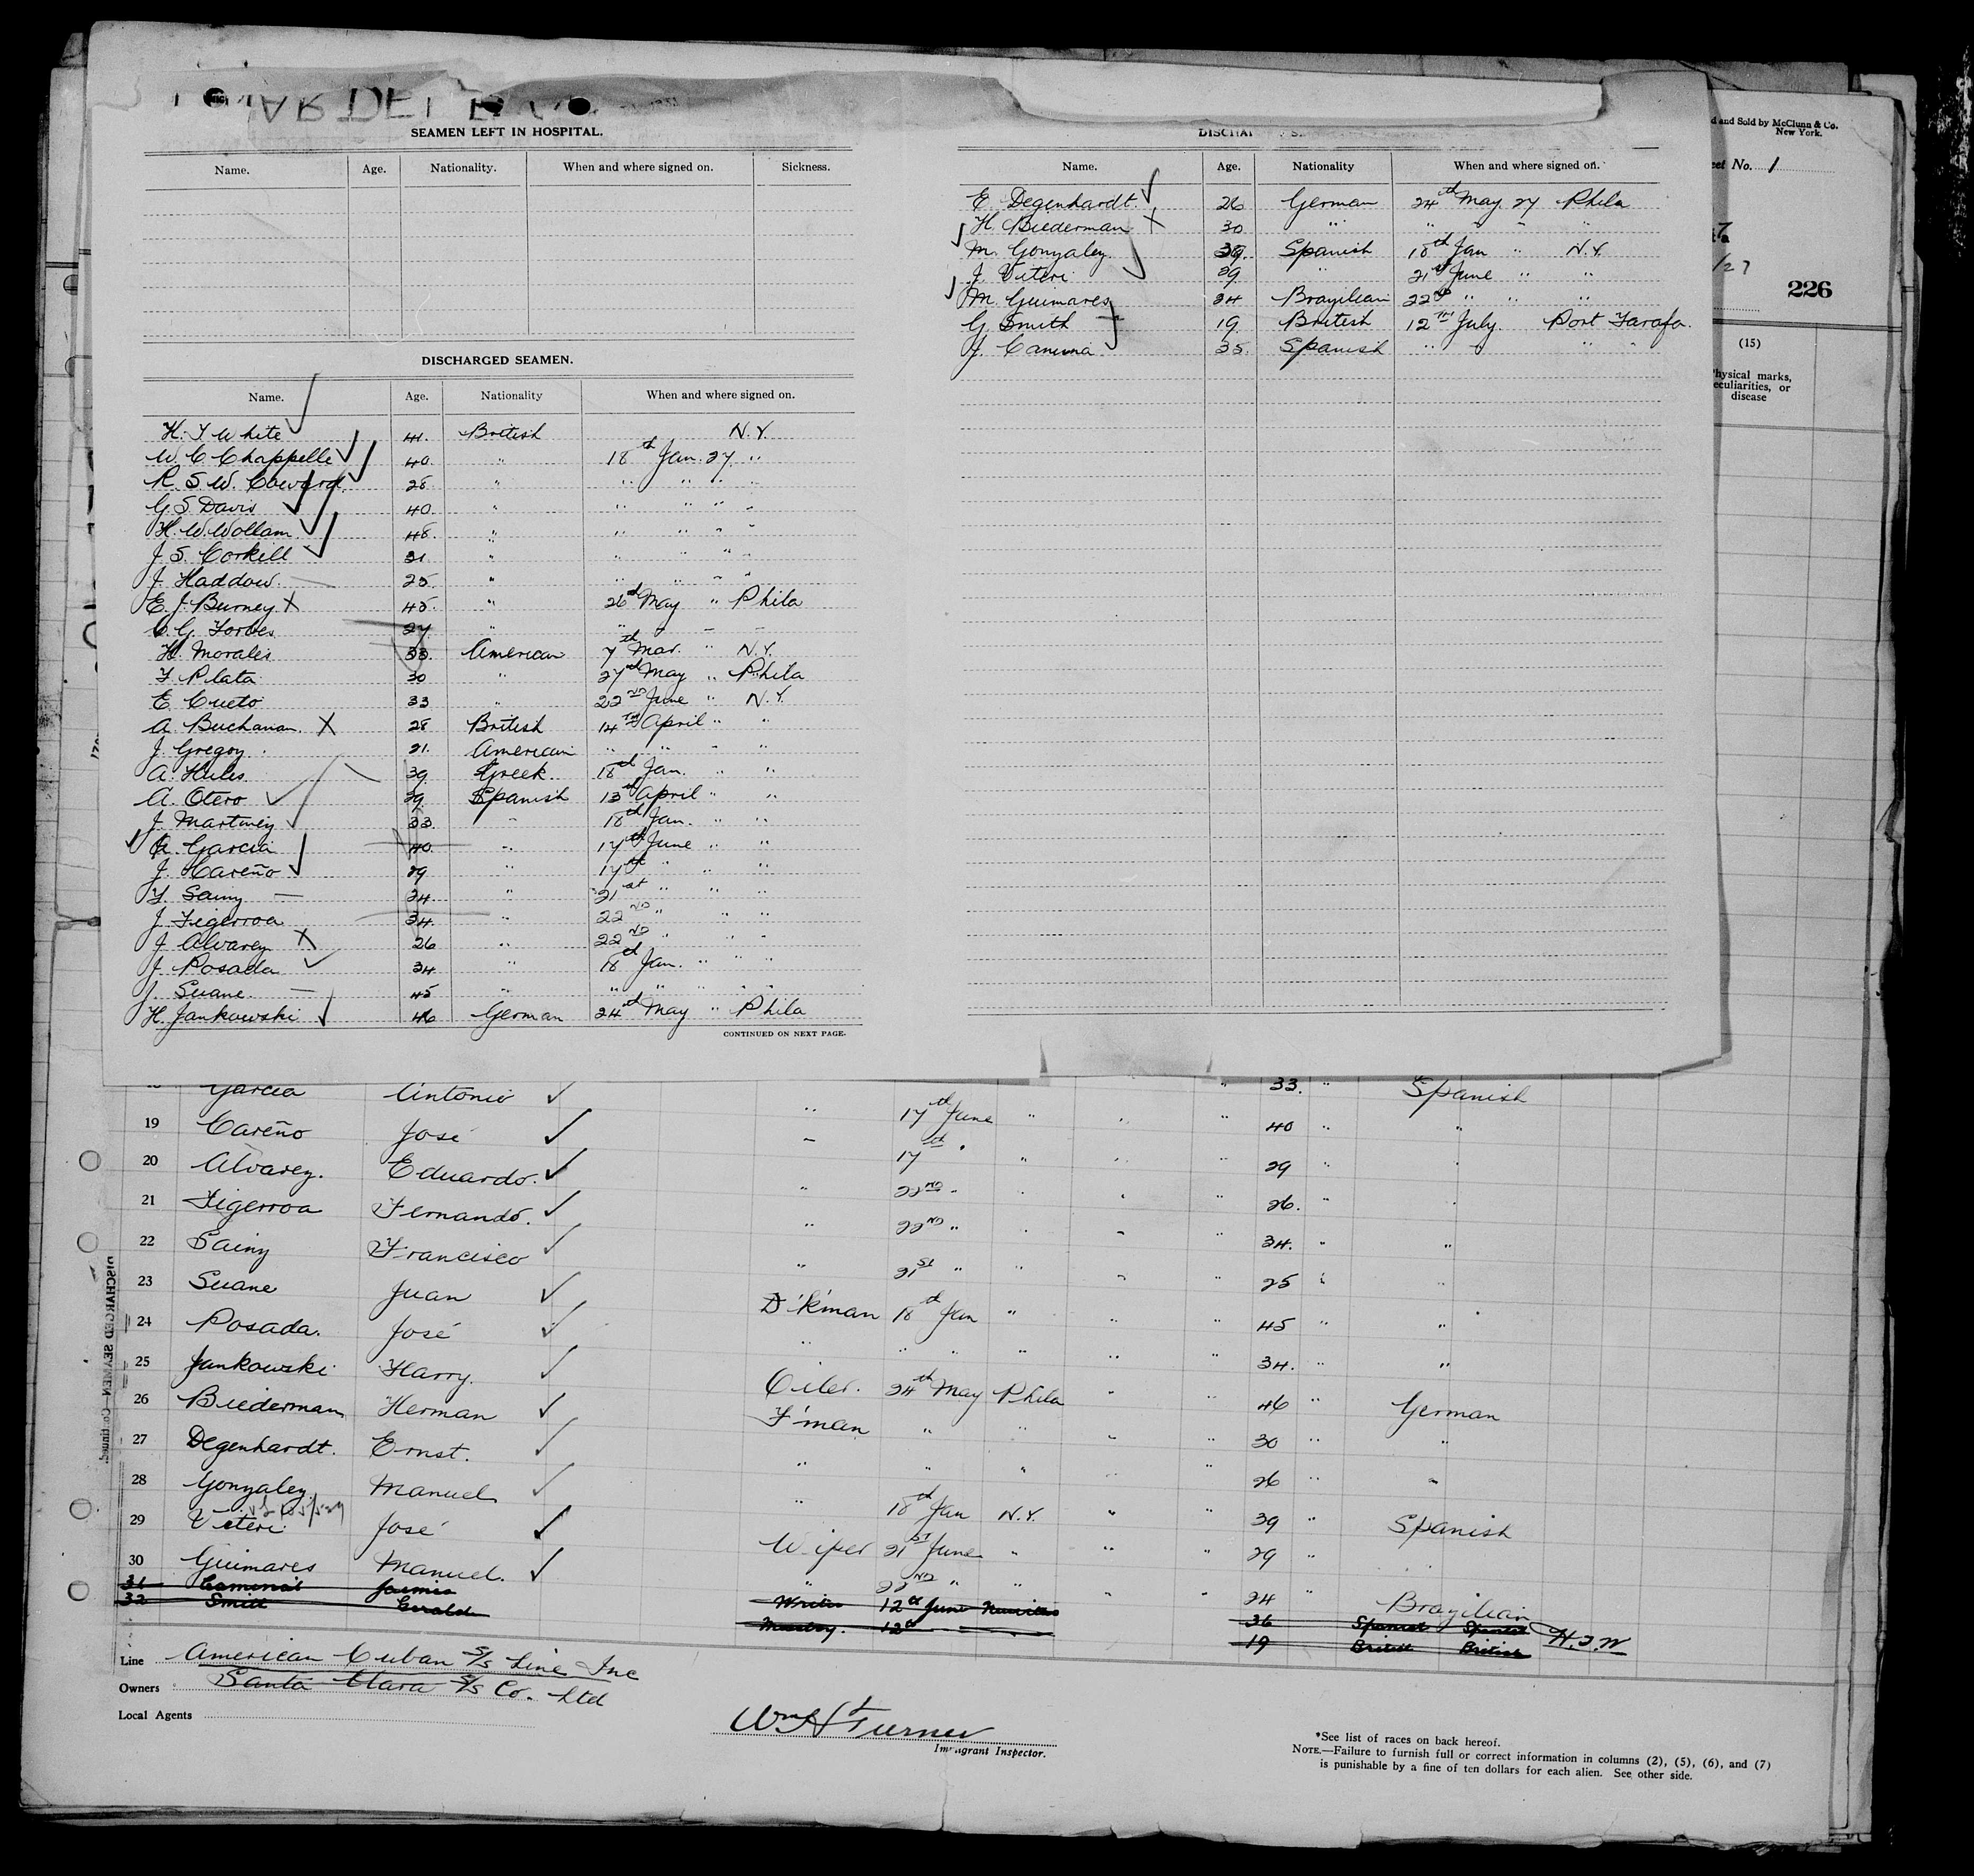 SEAMEN LEFT IN HOSPITAL.
Name. Age. Nationality. When and where signed on. Sickness.
DISCHARGED SEAMEN.
Name. Age. Nationality When and where signed on.
H. T White 41. British N.Y.
W. C Chappelle 40. " 18th Jan. 27 "
R. S. W. Coward. 28 " " " " "
G. S Davis 40. " " " " "
H. W. Wollam 48. " " " " "
J. S. Corkell 21 " " " " "
J. Haddow 25. " " " " "
E. J. Burney X 45. " 26th May " Phila
G. Forbes 27 " " " "
H. Morales 33. American 7th Mar. " N.Y.
F Plata 30 " 27th May " Phila
E. Cueto 33 " 22ND June " N.Y.
A. Buchanan. X 28 British 14TH April " "
J. Gregoy. 21. American " " " "
A. Hules 39 Greek. 18th Jan. " "
A. Otero 39 Spanish 13th April " "
J. Martinez 33. " 18th Jan. " "
A. Garcia 40. " 17th June " "
J. Careño 29 " 17th " " "
F. Sainz 24. " 21st " " "
J. Figerroa 34. " 22ND " " "
J Alvarez X 26 " 22ND " " "
J. Posada 34 " 18th Jan. " " "
J. Suane. 45 " " " " "
H. Jankowski 46 German 24th May " Phila
CONTINUED ON NEXT PAGE.
Name. Age. Nationality When and where signed on.
E. Degenhardt. 26 German 24th May. 27 Phila
H. Biederman X 30 " " " " "
M. Gonzalez. 39. Spanish 18th Jan " N.Y.
J. Viteri 29 " 21st June " "
M. Guimares 24 Brazilian 22nd " " "
G. Smith 19. British 12TH July. Port Tarafa.
J. Canuna 35. Spanish " " " "
d and Sold by McClunn & Co.
New York.
eet No. 1
7
/27
226
(15)
Physical marks,
eculiarities, or
disease
Garcia Antonio 33. " Spanish
19 Careño José " 17th June " " " 40 " "
20 Alvarez. Eduardo. 17th " " " " 29 " "
21 Figerroa Fernando. " 22ND " " " " 26. " "
22 Sainz Francisco " 22ND " " " " 34. " "
23 Suane Juan " 21ST " " " " 25 " "
24 Posada. José D'k'man 18th Jan " " " 45 " "
25 Jankowski Harry. " " " " " " 34. " "
26 Biederman Herman Oiler. 24th May Phila " " 46 " German
27 Degenhardt. Ernst. F'man " " " " 30 " "
28 Gonzalez Manuel " " " " " 26 " "
29 Viteri José " 18th Jan N.Y. " " 39 " Spanish
30 Guimares Manuel. Wiper 21ST June " " " 29 " "
" 22ND " " " " 24 Brazilian
31 Jaimie 12th June 36 Spanish Spanish
32 Smith Gerald Messboy. 12th 19 British British H.T.W
DISCHARGED SEAMEN—Continued.
Line American Cuban S/S Line Inc
Owners Santa Clara S/S Co. Ltd
Local Agents
Wm H Turner
Immigrant Inspector.
*See list of races on back hereof.
NOTE.—Failure to furnish full or correct information in columns (2), (5), (6), and (7)
is punishable by a fine of ten dollars for each alien. See other side.